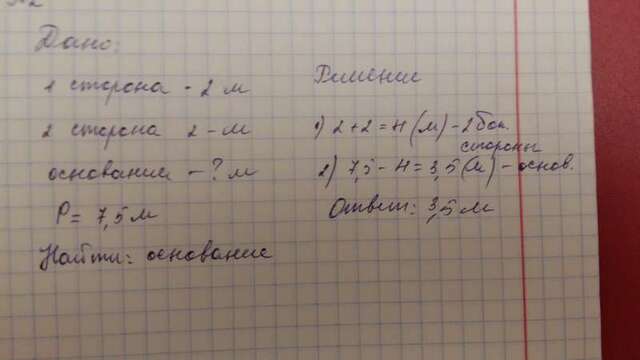 №2
Дано:
1 сторона - 2 м
2 сторона 2 - м
основание - ? м
P = 7,5 м
Найти: основание
Решение
1) 2+2=4 (м) - 2 бок. стороны
2) 7,5-4=3,5 (м) - основ.
Ответ: 3,5 м